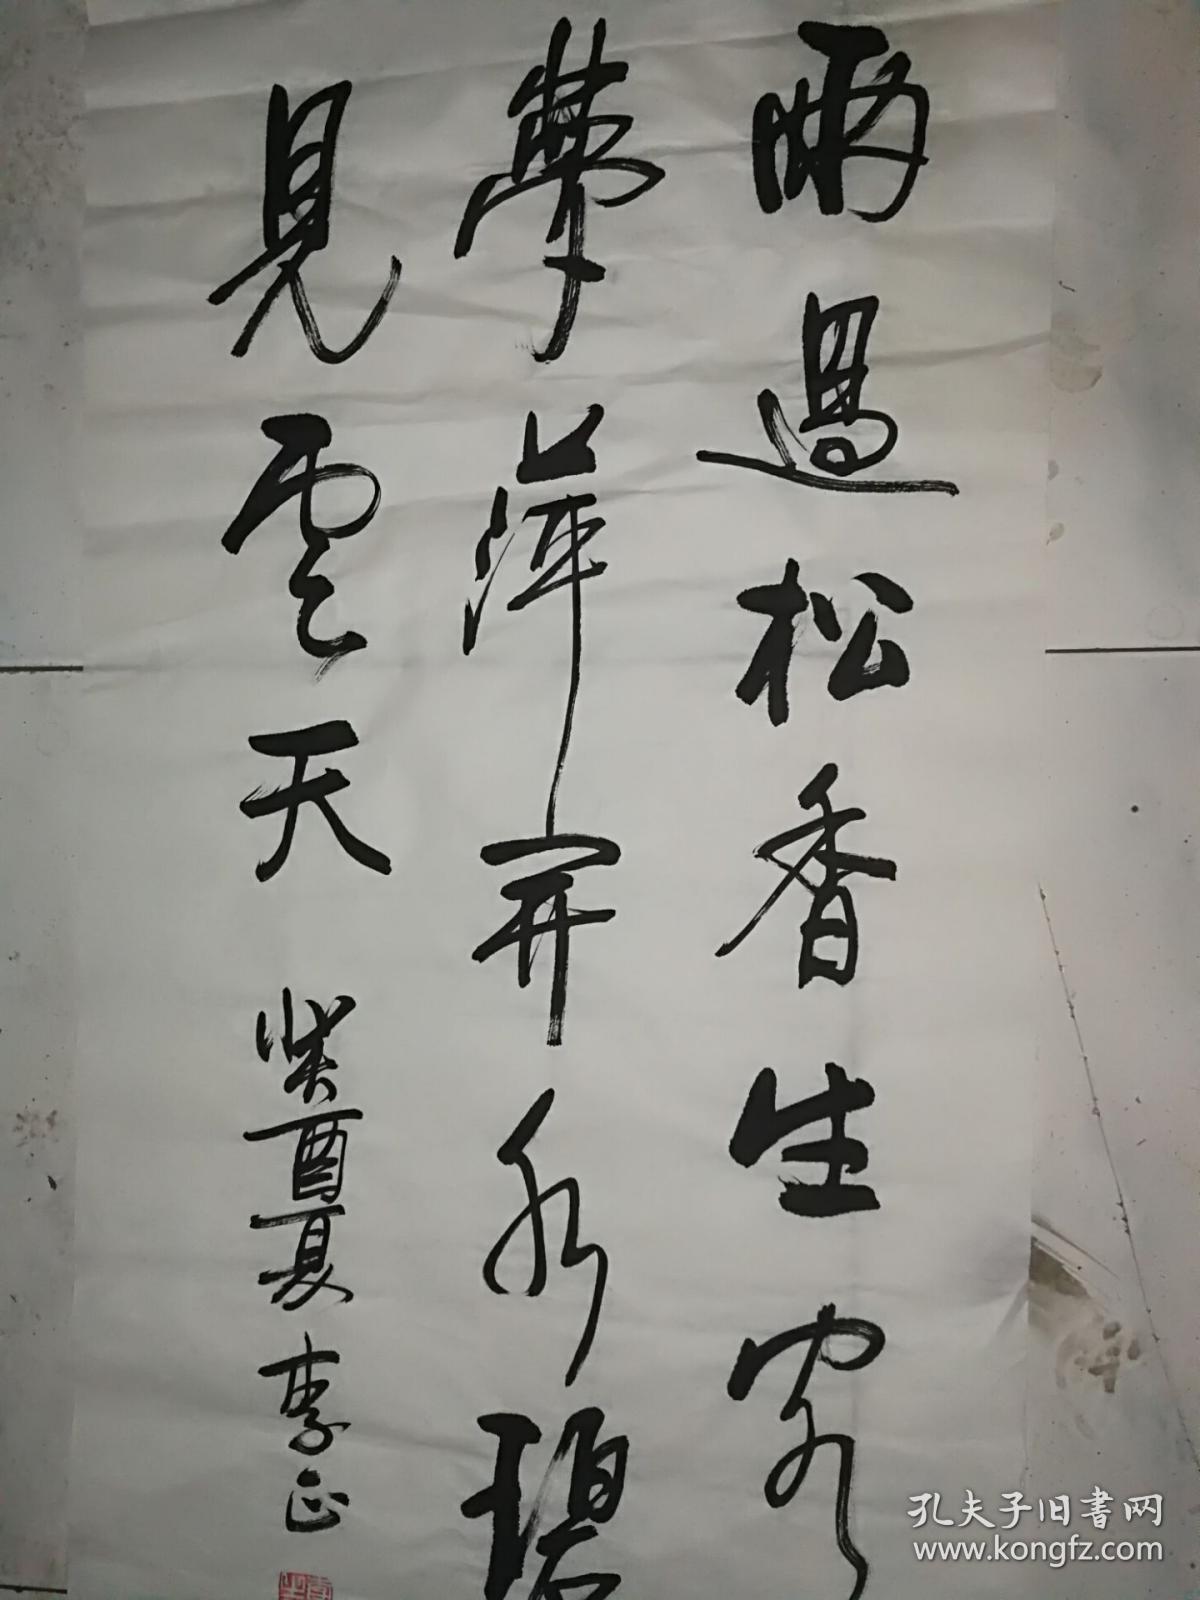 雨過松香生客
夢萍開水碧
見雲天
癸酉夏 李正
孔夫子旧书网
www.kongfz.com